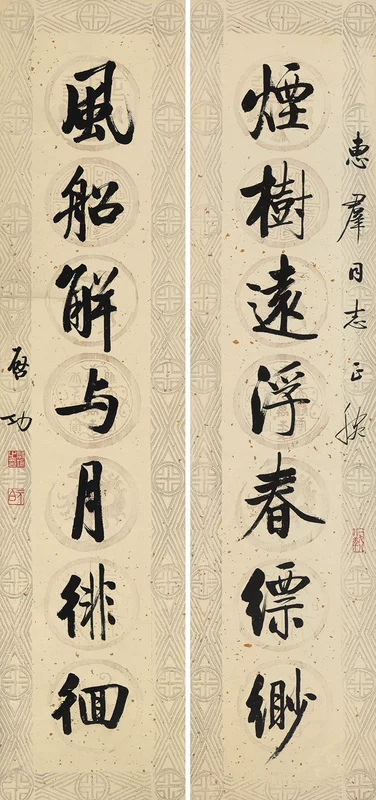 惠羣同志正腕
煙樹遠浮春縹緲
風船解与月徘徊
啓功